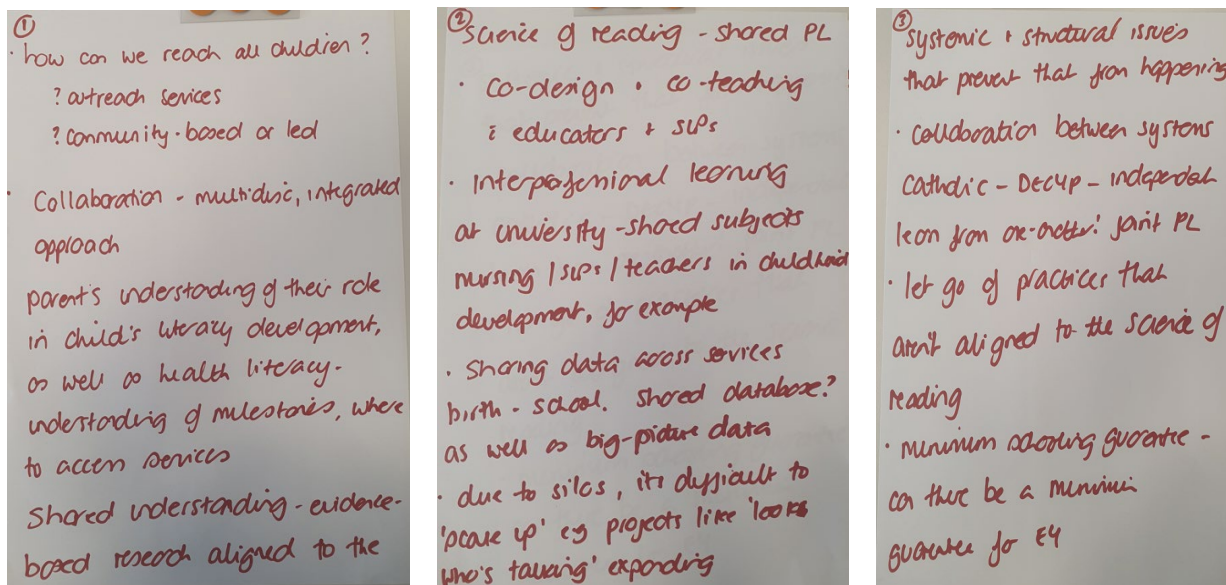 ①
· how can we reach all children?
? outreach services
? community-based or led
· Collaboration - multidisc, integrated
approach
parent's understanding of their role
in child's literacy development,
as well as health literacy-
understanding of milestones, where
to access services
Shared understanding - evidence-
based research aligned to the
②
science of reading - shared PL
· co-design + co-teaching
c̄ educators + SLPs
· Interprofessional learning
at university - shared subjects
nursing / SLPs / teachers in childhood
development, for example
· Sharing data across services
birth - school. Shared database?
as well as big-picture data
· due to silos, it's difficult to
'scale up' eg projects like 'looks
who's talking' expanding
③
systemic + structural issues
that prevent that from happening
· collaboration between systems
Catholic - DECYP - independent
learn from one-another! joint PL
· let go of practices that
aren't aligned to the science of
reading
· minimum schooling guarantee -
can there be a minimum
guarantee for EY